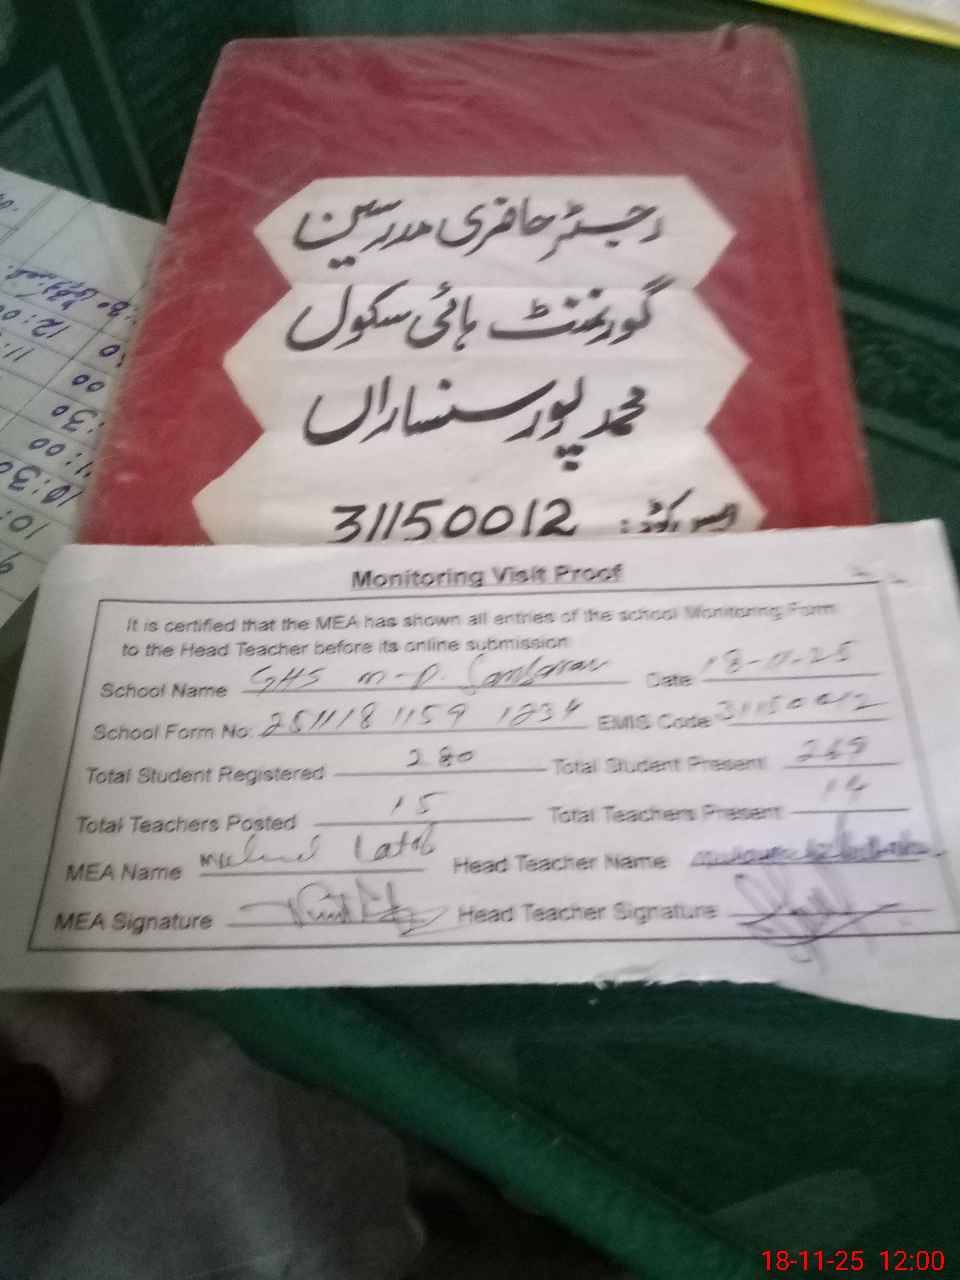 رجسٹر حاضری مدرسین
گورنمنٹ ہائی سکول
محمد پور سنساراں
31150012 :کوڈ
Monitoring Visit Proof
It is certified that the MEA has shown all entries of the school Monitoring Form
to the Head Teacher before its online submission
School Name GHS M-P. Date 18-11-25
School Form No: 251118 1159 1234 EMIS Code 31150012
Total Student Registered 280 Total Student Present 269
Total Teachers Posted 15 Total Teachers Present 14
MEA Name Latif Head Teacher Name
MEA Signature Head Teacher Signature
12:0
11:
00
:30
11:00
10:30
10:
18-11-25 12:00